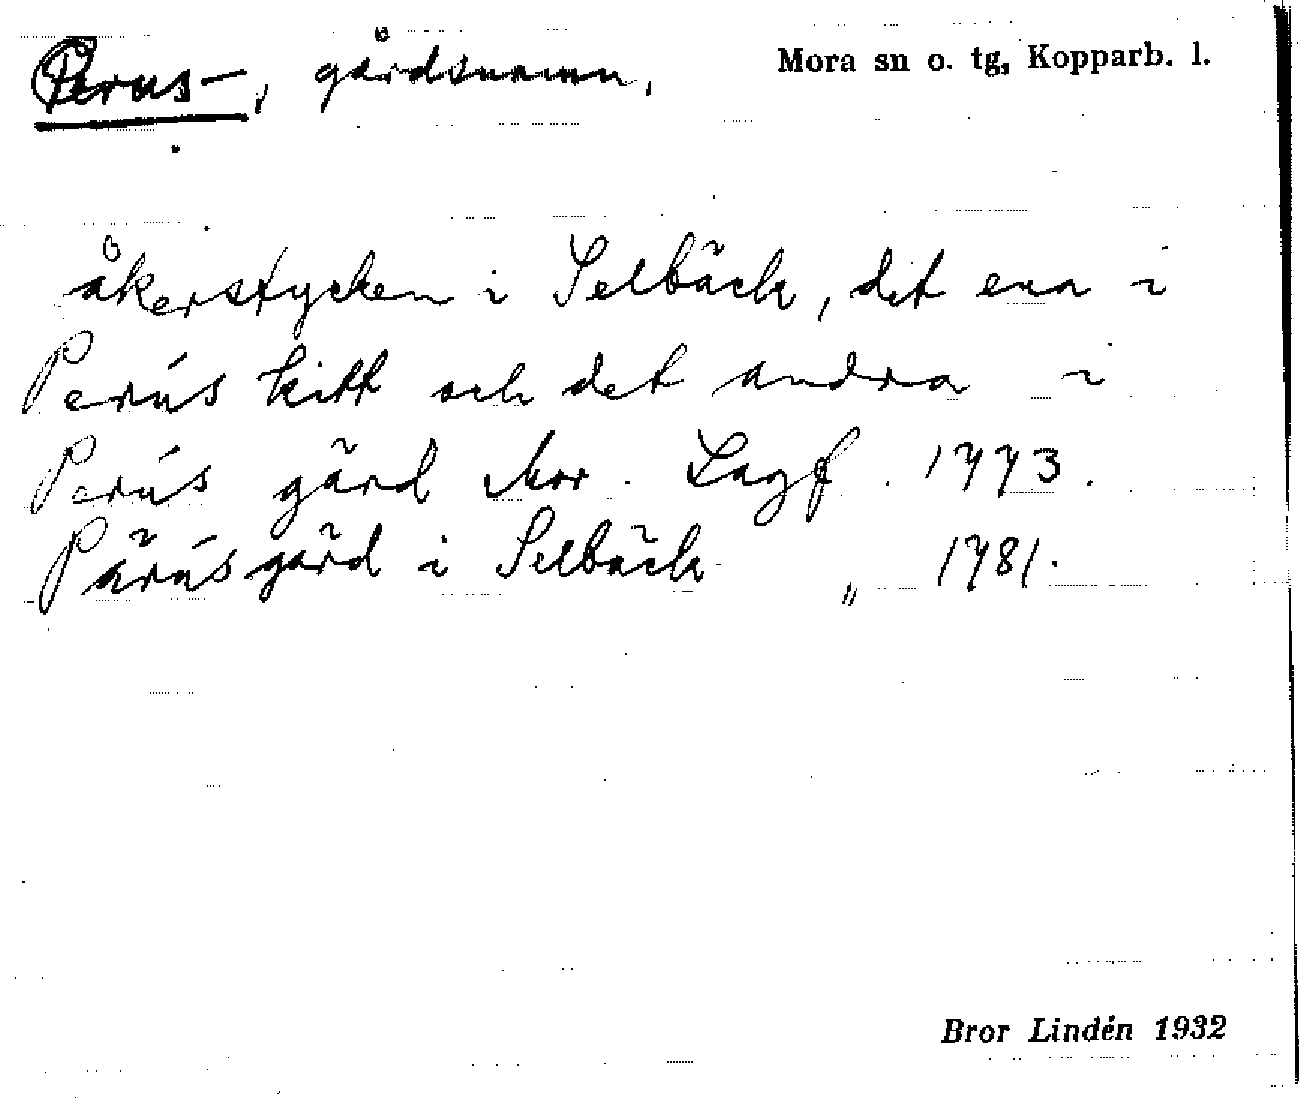 Perus-, gårdsnamn,
Mora sn o. tg, Kopparb. l.
åkerstycken i Selbäck, det ena i
Perús kitt och det andra i
Perús gärd Mor. Lagf. 1773.
Pärúsgärd i Selbäck " 1781.
Bror Lindén 1932